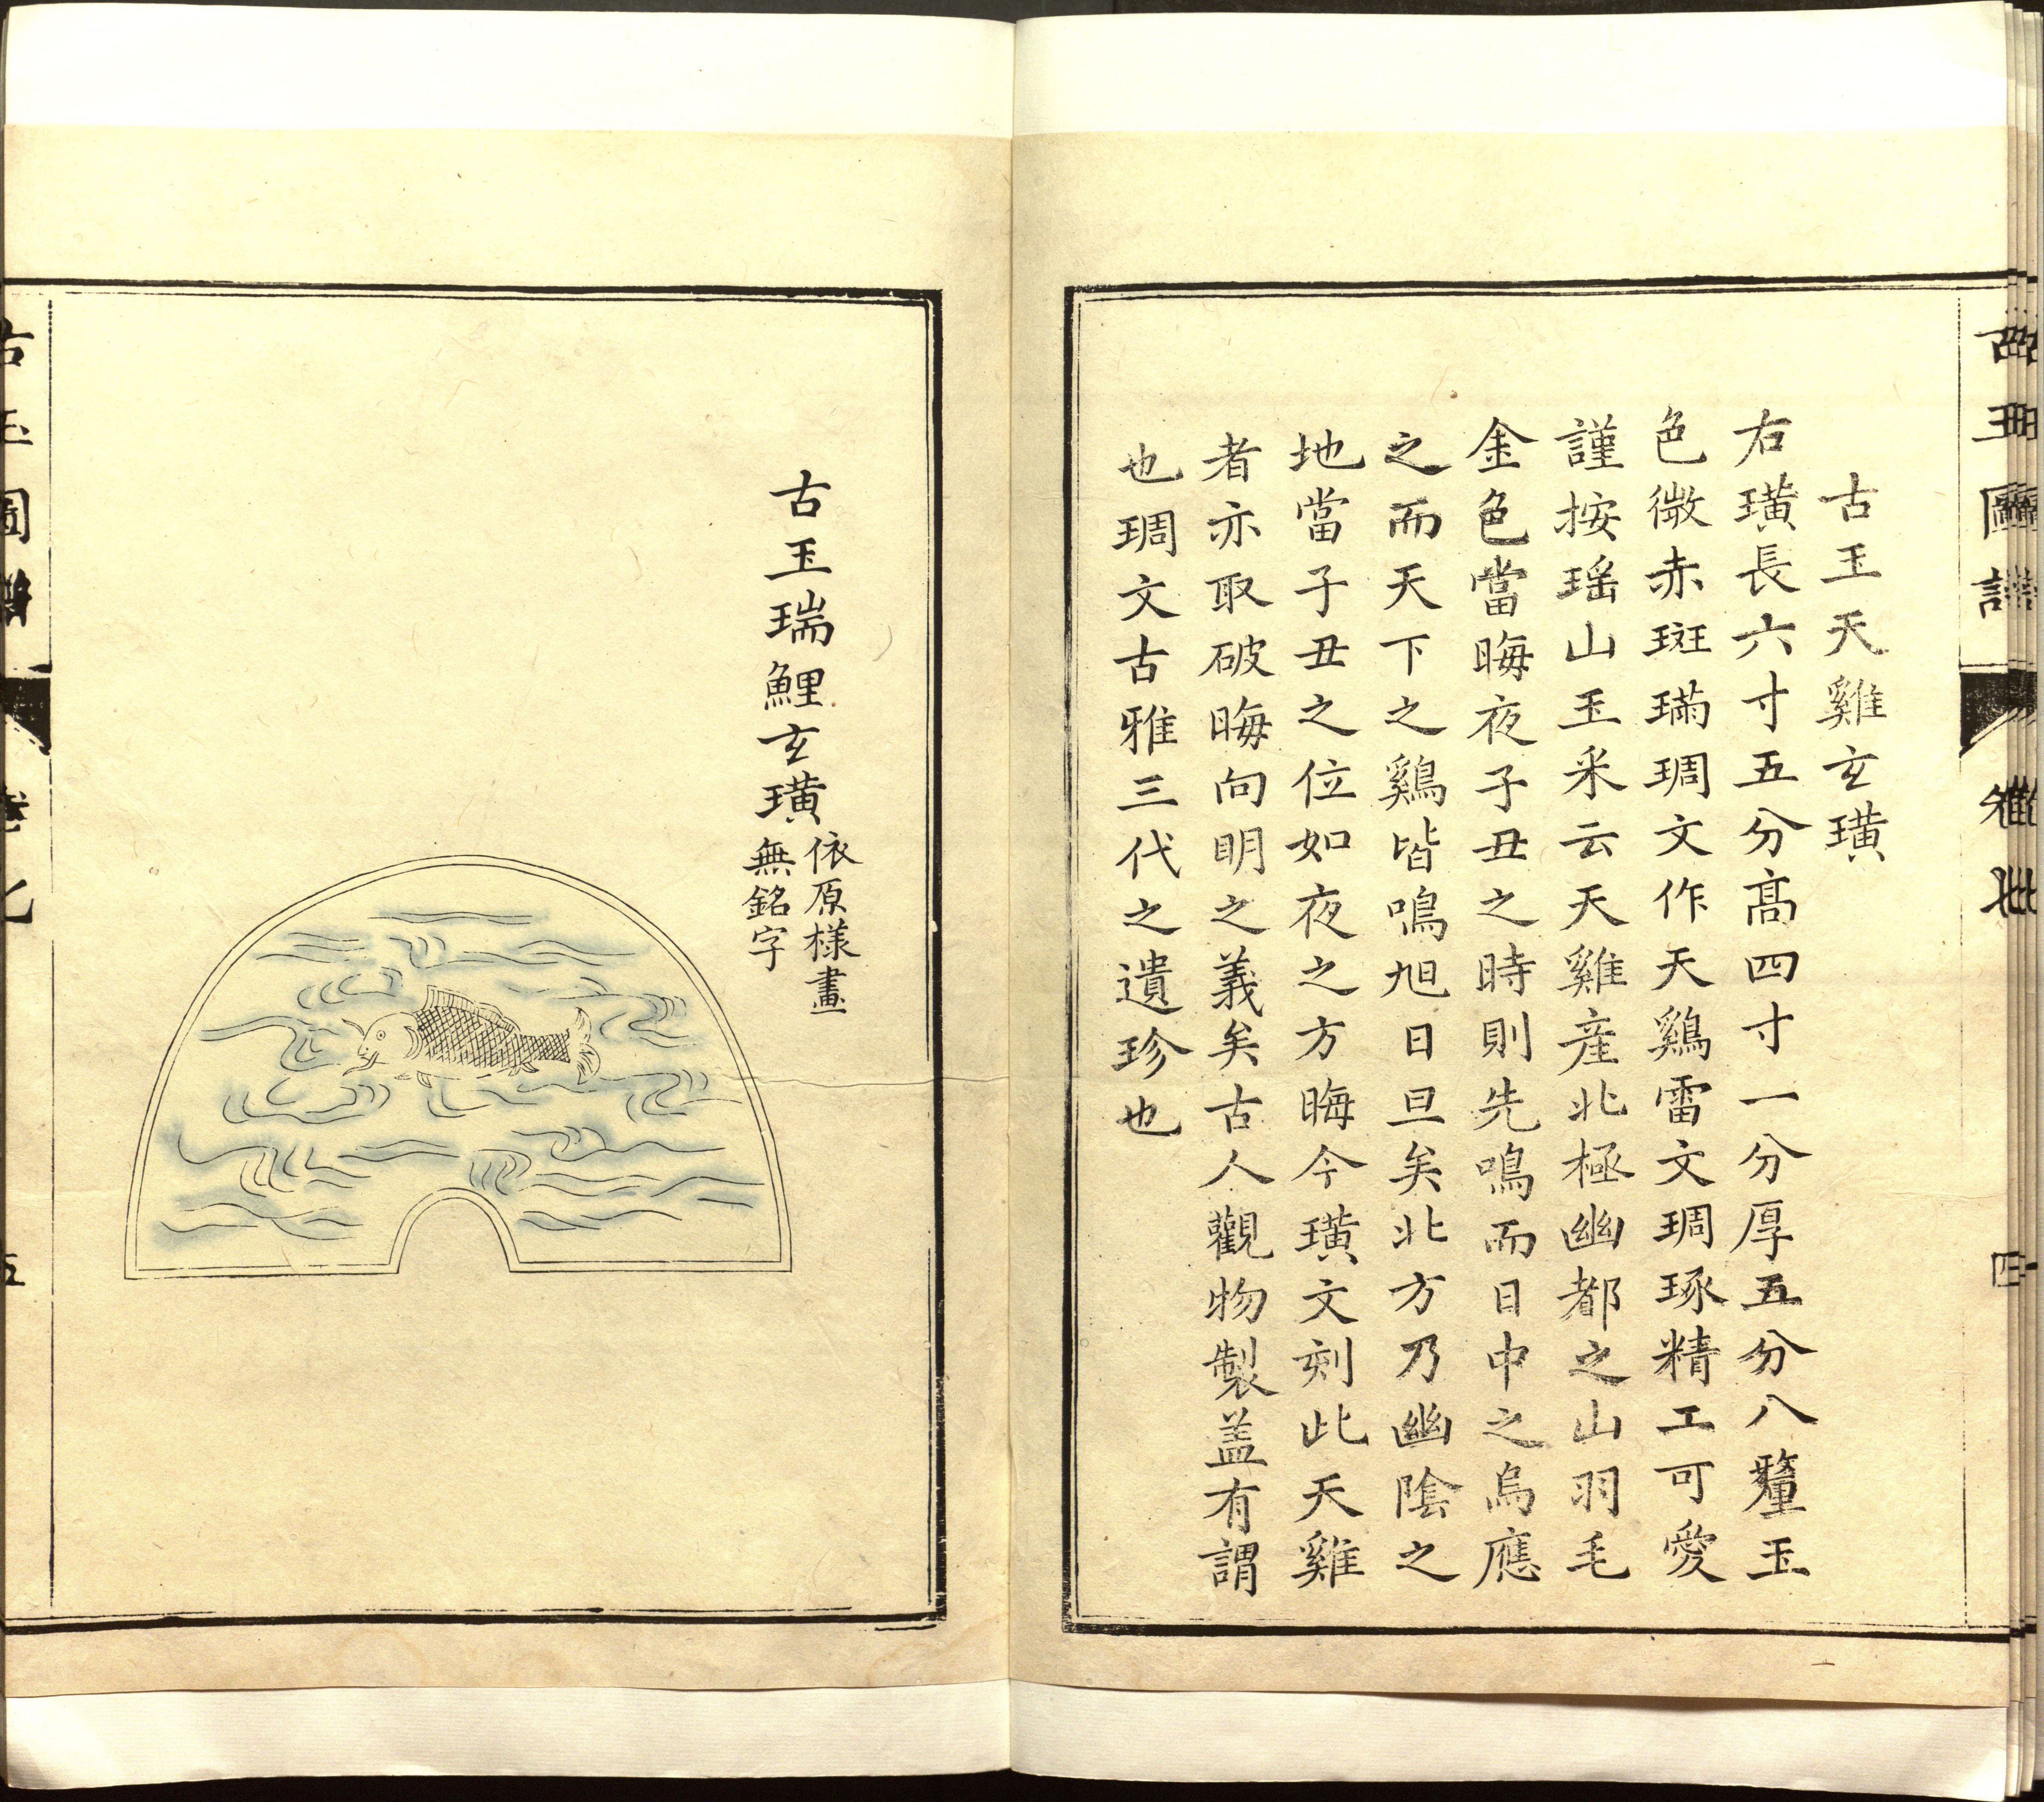 古玉天雞玄璜
右璜長六寸五分高四寸一分厚五分八釐玉
色微赤斑璊琱文作天鷄雷文琱琢精工可愛
謹按瑶山玉釆云天雞產北極幽都之山羽毛
金色當晦夜子丑之時則先鳴而日中之烏應
之而天下之鷄皆鳴旭日旦矣北方乃幽陰之
地當子丑之位如夜之方晦今璜文刻此天雞
者亦取破晦向明之義矣古人觀物製盖有謂
也琱文古雅三代之遺珍也
古玉瑞鯉玄璜
依原樣畫
無銘字